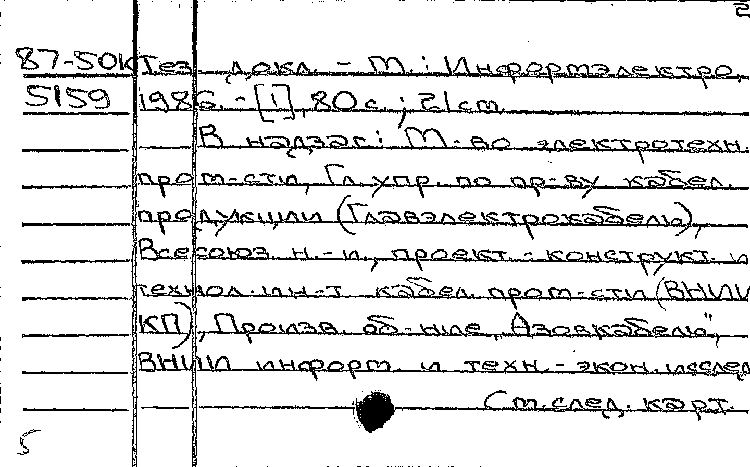 2
87-50К Тез. докл. - М.: Информэлектро,
5159 1986. - [1], 80 с.; 21 см
В надзаг: М-во электротехн.
пром-сти, Гл. упр. по пр-ву кабел.
продукции (Главэлектрокабель),
Всесоюз. н.-и., проект.-конструкт. и
технол. ин-т кабел. пром-сти (ВНИИ
КП), Произв. об-ние „Азовкабель",
ВНИИ информ. и техн.-экон. исслед
См. след. карт.
5